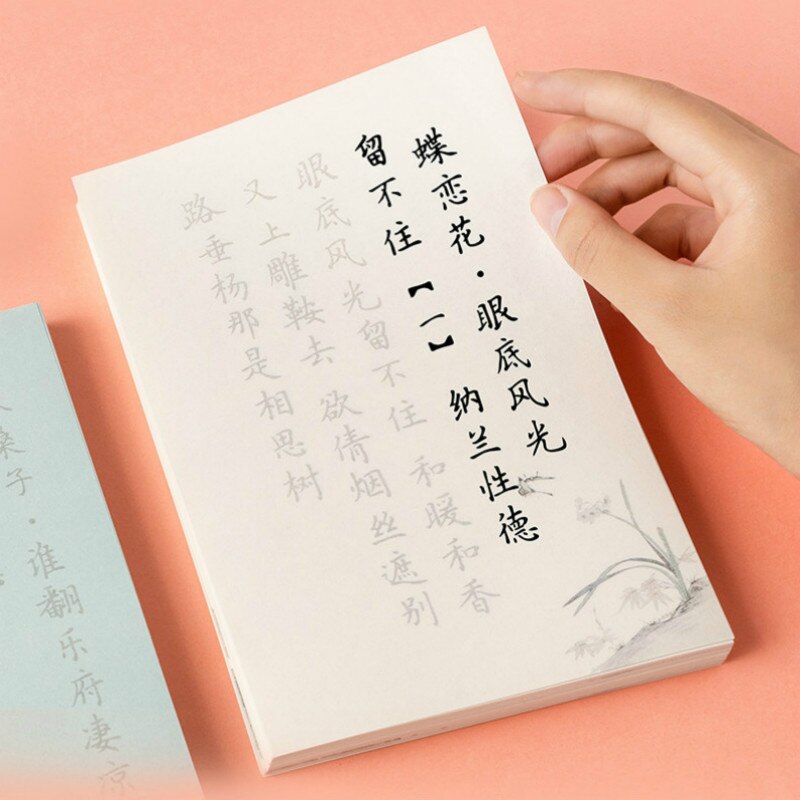 蝶恋花·眼底风光
留不住【一】 纳兰性德
眼底风光留不住 和暖和香
又上雕鞍去 欲倩烟丝遮别
路垂杨那是相思树
桑子·谁翻乐府凄凉